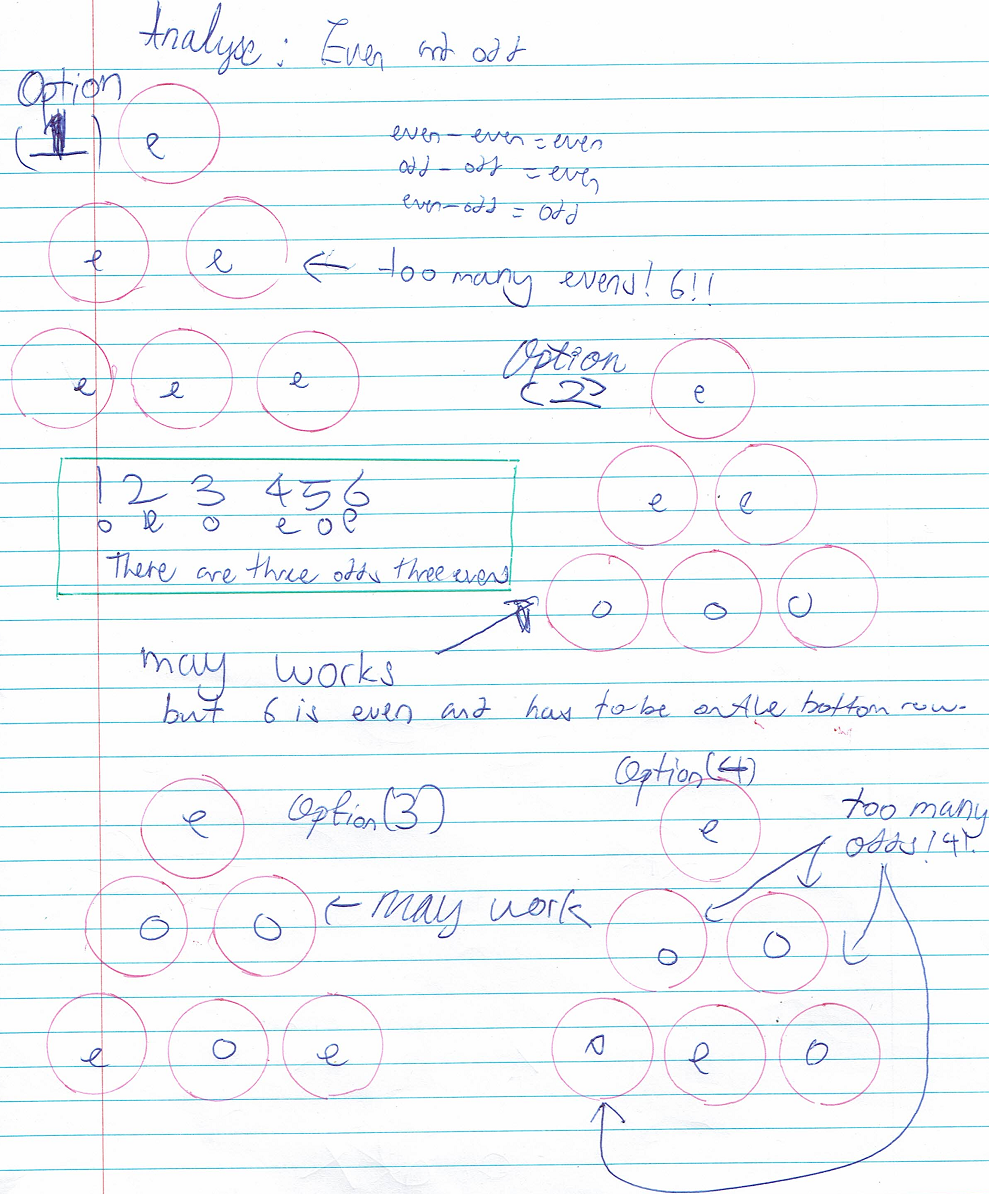 Analyse: Even and odd
Option
(1)
e
even - even = even
odd - odd = even
even - odd = odd
e e
← too many evens! 6!!
e e e
Option
(2)
e
e e
o o o
1 2 3 4 5 6
o e o e o e
There are three odds three evens
may works
but 6 is even and has to be on the bottom row.
Option(3)
e
o o
← may work
e o e
Option(4)
e
too many
odds! 4!
o o
o e o